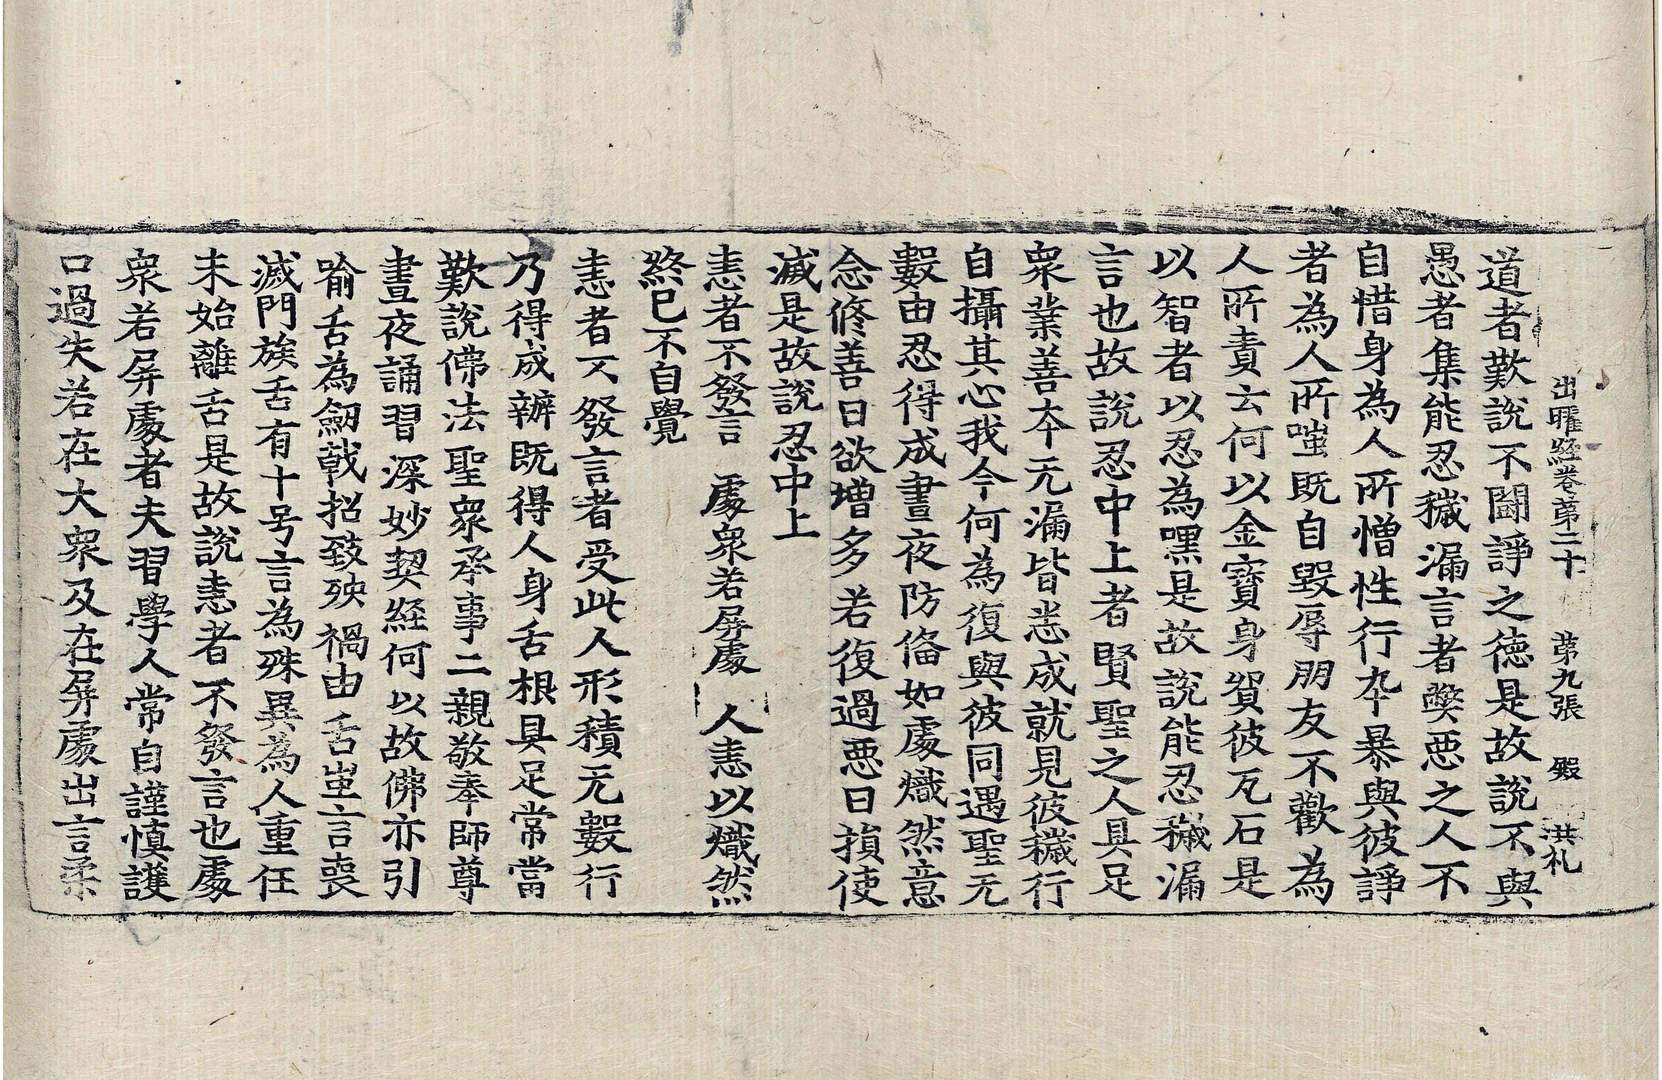 出曜經卷第二十 第九張 殷 洪礼
道者歎說不鬪諍之德是故說不與
愚者集能忍穢漏言者弊惡之人不
自惜身為人所憎性行卒暴與彼諍
者為人所嗤既自毀辱朋友不歡為
人所責云何以金寶身貿彼瓦石是
以智者以忍為嘿是故說能忍穢漏
言也故說忍中上者賢聖之人具足
衆業善夲无漏皆悉成就見彼穢行
自攝其心我今何為復與彼同遇聖无
數由忍得成晝夜防俻如處熾然意
念修善日欲增多若復過惡日損使
滅是故說忍中上
恚者不發言 處衆若屏處 人恚以熾然
終已不自覺
恚者不發言者受此人形積无數行
乃得成辦既得人身舌根具足常當
歎說佛法聖衆承事二親敬奉師尊
晝夜誦習深妙契經何以故佛亦引
喻舌為劒戟招致殃禍由舌壴言喪
滅門族舌有十号言為殊異為人重任
未始離舌是故說恚者不發言也處
衆若屏處者夫習學人常自謹慎護
口過失若在大衆及在屏處出言柔